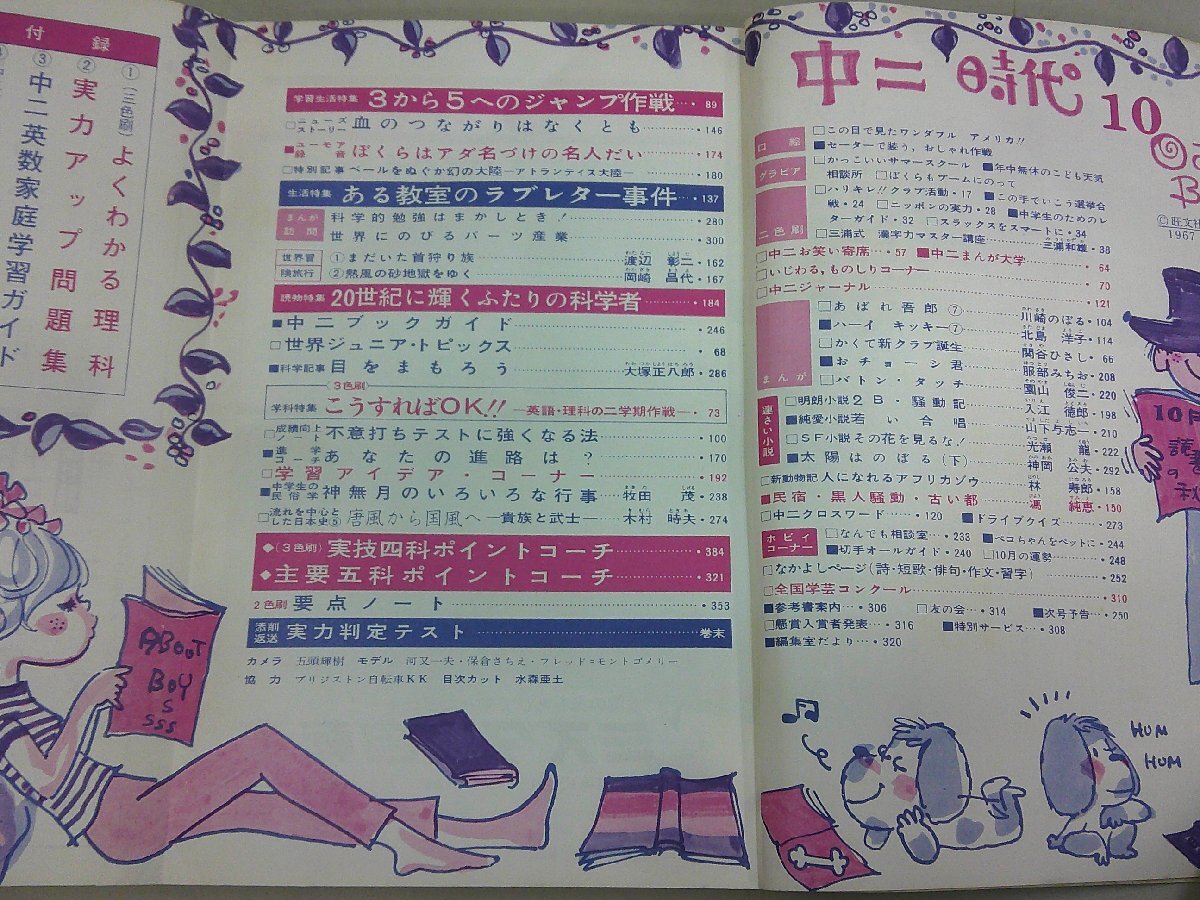 中二時代 10
© 旺文社 1967
口絵
□この目で見たワンダフル アメリカ!!
■セーターで装う，おしゃれ作戦
グラビア
□かっこいいサマースクール ■年中無休のこども天気
相談所 □ぼくらもブームにのって
二色刷
□ハリキレ!!クラブ活動・17 ■この手でいこう選挙合
戦・24 □ニッポンの実力・28 ■中学生のためのレ
ターガイド・32 □スラックスをスマートに・34
□三浦式 漢字力マスター講座 三浦和雄・38
□中二お笑い寄席・57 ■中二まんが大学 64
□いじわる，ものしりコーナー 70
□中二ジャーナル 121
まんが
□あばれ吾郎⑦ 川崎のぼる・104
■ハーイ キッキー⑦ 北島 洋子・114
□かくて新クラブ誕生 関谷ひさし・66
■おチョーシ君 服部みちお・208
□バトン・タッチ 園山 俊二・220
連さい小説
□明朗小説2B・騒動記 入江 徳郎・198
■純愛小説若い合唱 山下与志一・210
□SF小説その花を見るな! 光瀬 龍・222
■太陽はのぼる(下) 神岡 公夫・292
□新動物記 人になれるアフリカゾウ 林 寿郎・158
■民宿・黒人騒動・古い都 馮 純恵・150
□中二クロスワード・120 ■ドライブクイズ・273
ホビィコーナー
□なんでも相談室・233 ■ペコちゃんをペットに・244
■切手オールガイド・240 □10月の運勢・248
□なかよしページ(詩・短歌・俳句・作文・習字) 252
□全国学芸コンクール 310
■参考書案内・306 □友の会・314 ■次号予告・250
□懸賞入賞者発表・316 ■特別サービス・308
■編集室だより・320
学習生活特集 3から5へのジャンプ作戦・89
□ニューズストーリー 血のつながりはなくとも・146
■ユーモア録音 ぼくらはアダ名づけの名人だい・174
□特別記事 ベールをぬぐか幻の大陸―アトランティス大陸―・180
生活特集 ある教室のラブレター事件・137
まんが訪問
科学的勉強はまかしとき！・280
世界にのびるパーツ産業・300
世界冒険旅行
①まだいた首狩り族 渡辺 彰二・162
②熱風の砂地獄をゆく 岡崎 昌代・167
読物特集 20世紀に輝くふたりの科学者・184
■中二ブックガイド・246
□世界ジュニア・トピックス・68
■科学記事 目をまもろう 大塚正八郎・286
3色刷
学科特集 こうすればOK!!―英語・理科の二学期作戦―・73
□成績向上ノート 不意打ちテストに強くなる法・100
■進学コーチ あなたの進路は？・170
□学習アイデア・コーナー・192
■中学生の民俗学 神無月のいろいろな行事 牧田 茂・238
□流れを中心とした日本史⑤ 唐風から国風へ―貴族と武士― 木村 時夫・274
◆(3色刷) 実技四科ポイントコーチ・384
◆主要五科ポイントコーチ・321
2色刷 要点ノート・353
添削返送 実力判定テスト・巻末
カメラ 五頭輝樹 モデル 河又一夫・保倉さちえ・フレッド=モントゴメリー
協力 ブリジストン自転車KK 目次カット 水森亜土
付録
①(三色刷)よくわかる理科
②実力アップ問題集
③中二英数家庭学習ガイド
ABOUT
BOY
S
SSS
HUM
HUM
10月
読書
の秋